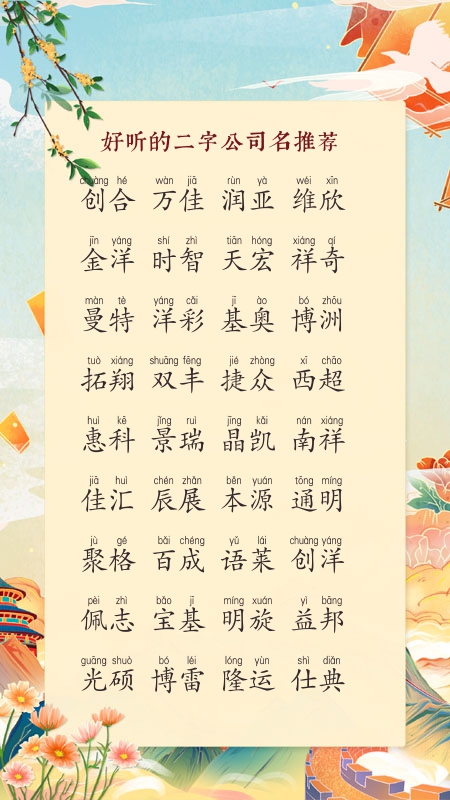 好听的二字公司名推荐
chuàng hé wàn jiā rùn yà wéi xīn
创合 万佳 润亚 维欣
jīn yáng shí zhì tiān hóng xiáng qí
金洋 时智 天宏 祥奇
màn tè yáng cǎi jī ào bó zhōu
曼特 洋彩 基奥 博洲
tuò xiáng shuāng fēng jié zhòng xī chāo
拓翔 双丰 捷众 西超
huì kē jǐng ruì jīng kǎi nán xiáng
惠科 景瑞 晶凯 南祥
jiā huì chén zhǎn běn yuán tōng míng
佳汇 辰展 本源 通明
jù gé bǎi chéng yǔ lái chuàng yáng
聚格 百成 语莱 创洋
pèi zhì bǎo jī míng xuán yì bāng
佩志 宝基 明旋 益邦
guāng shuò bó léi lóng yùn shì diǎn
光硕 博雷 隆运 仕典